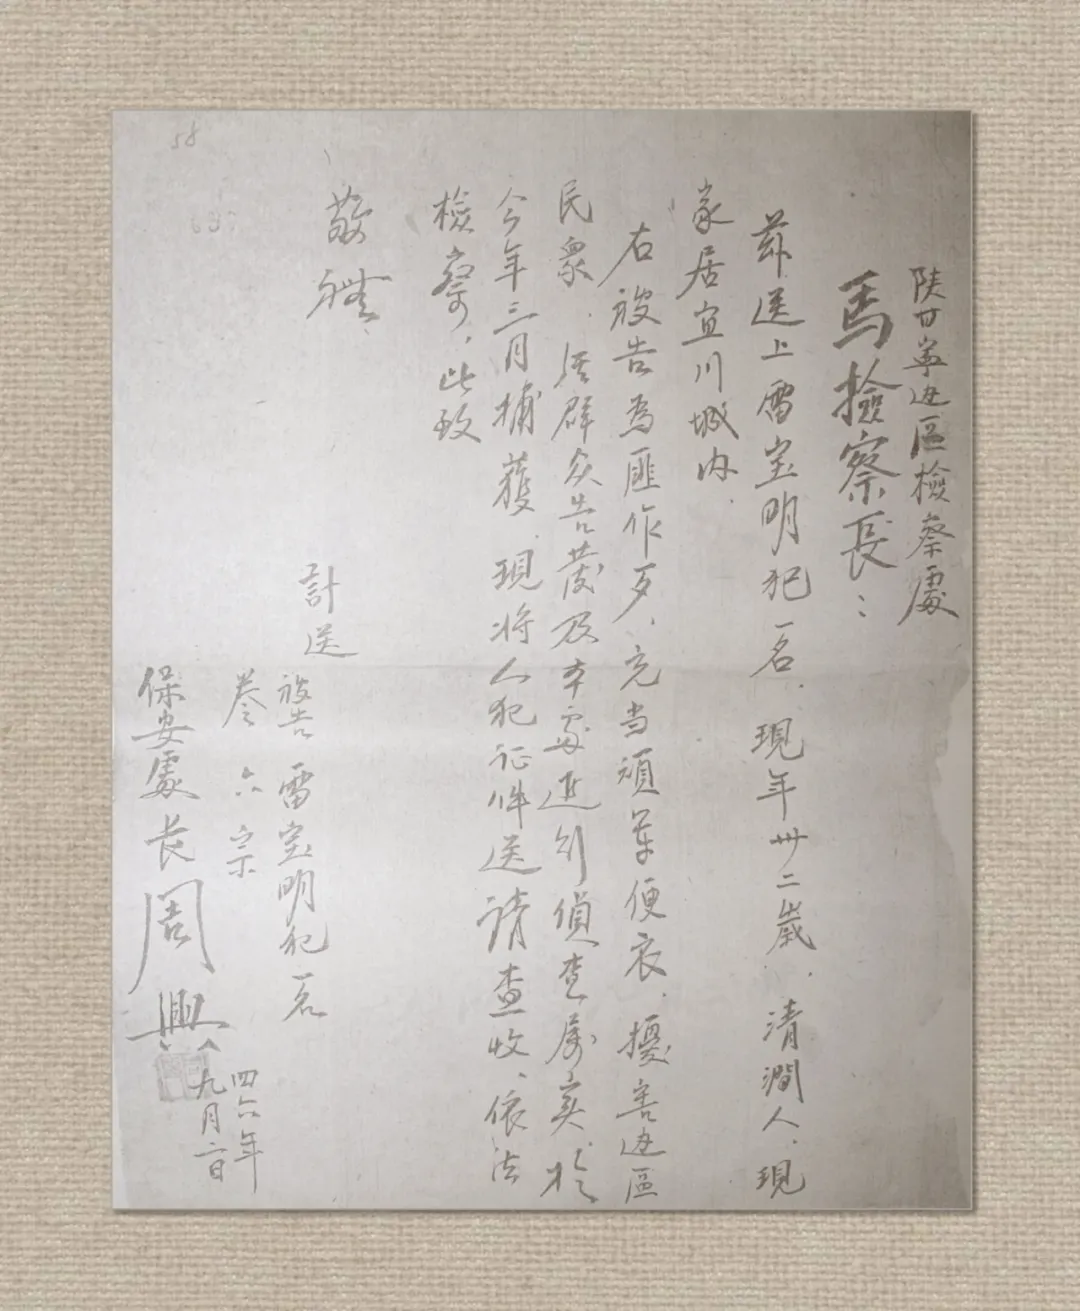 陕甘寧边區檢察處
馬檢察長：
兹送上雷宝明犯一名．現年卅二歲．清澗人．現
家居宜川城内．
右被告為匪作歹、充当頑军便衣．擾害边區
民衆．経群众告發及本處進行偵查属实．於
今年三月捕獲．現将人犯证件送请查收、依法
檢察，此致
敬礼．
計送
被告雷宝明犯一名
卷六宗
保安處长周興
四六年
九月二日
58